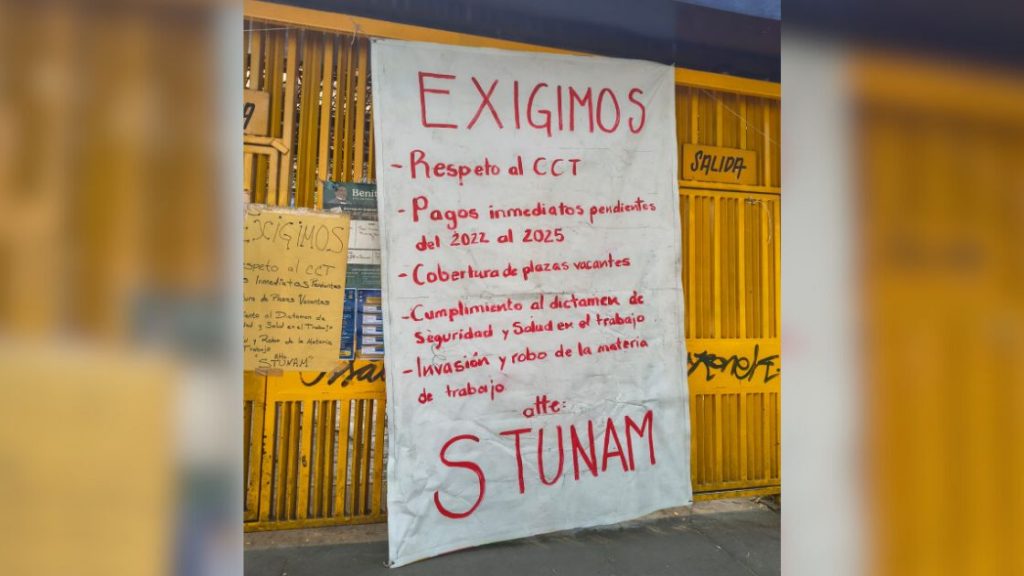 EXIGIMOS
- Respeto al CCT
- Pagos inmediatos pendientes
del 2022 al 2025
- Cobertura de plazas vacantes
- Cumplimiento al dictamen de
seguridad y Salud en el trabajo
- Invasión y robo de la materia
de trabajo
atte:
STUNAM
SALIDA
Benit
EXIGIMOS
speto al CCT
Inmediatos Pendientes
ura de Plazas Vacantes
iento al Dictamen de
dad y Salud en el Trabajo
n y Robo de la Materia
Trabajo
atte
"STUNAM"